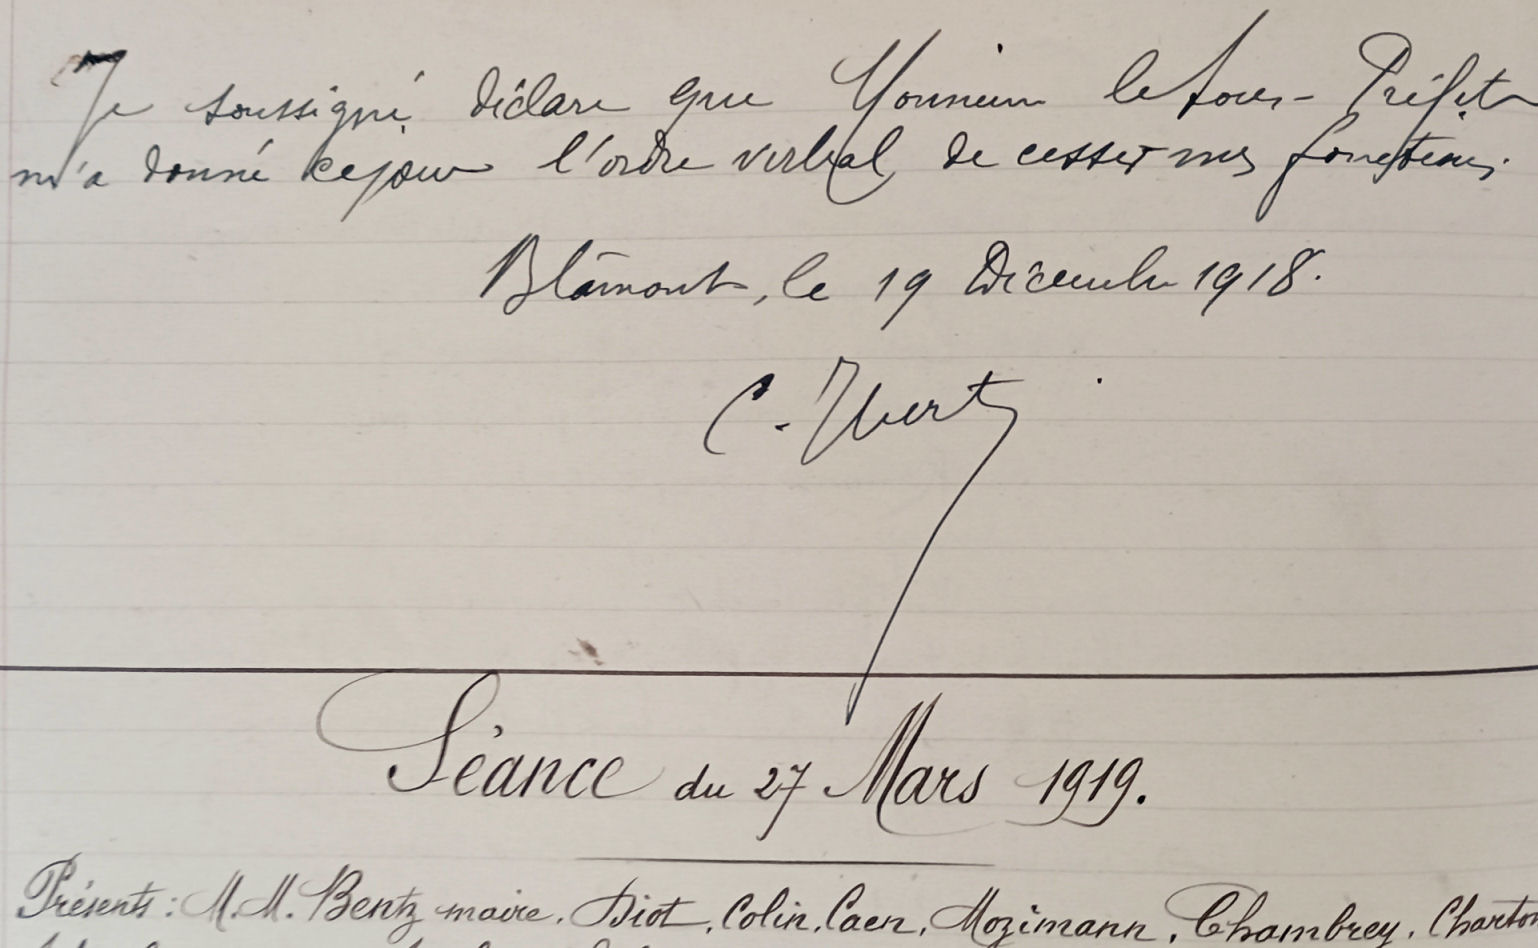 Je soussigné déclare que Monsieur le Sous-Préfet
m'a donné ce jour l'ordre verbal de cesser mes fonctions.
Blâmont, le 19 Décembre 1918.
C.
Séance du 27 Mars 1919.
Présents : M.M. Bentz maire, Diot, Colin, Caen, Mozimann, Chambrey, Charton